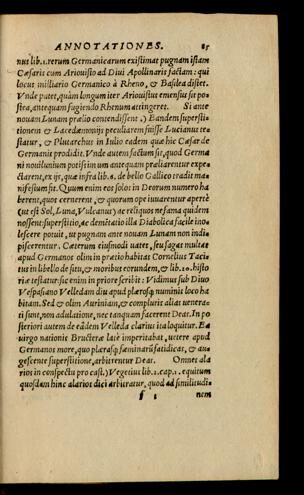 ANNOTATIONES. 85
nus lib. 1. rerum Germanicarum existimat pugnam istam
Cæsaris cum Ariouisto ad Diui Apollinaris factam: qui
locus milliario Germanico à Rheno, & Basilea distet.
Vnde patet, quàm longum iter Ariouistus emensus sit po-
stra, antequam fugiendo Rhenum attingeret. Si ante
nouam Lunam prælio contendissent.) Eandem supersti-
tionem & Lacedæmonijs peculiarem fuisse Lucianus te-
statur, & Plutarchus in Iulio eadem quæ hic Cæsar de
Germanis prodidit. Vnde autem factum sit, quod Germa
ni nouilunium potissimum ante quam præliarentur expe-
ctarent, ex ijs, quæ infra lib. 6. de bello Gallico tradit ma
nifestum fit. Quum enim eos solos in Deorum numero ha
berent, quos cernerent, & quorum ope iuuarentur apertè
(ut est Sol, Luna, Vulcanus) ac reliquos ne fama quidem
nossent: superstitio, ac dementatio illa Diabolica facilè ino
lescere potuit, ut pugnam ante nouam Lunam non indi-
piscerentur. Cæterum eiusmodi uates, seu sagas multas
apud Germanos olim in pratio habitas Cornelius Taci-
tus in libello de situ, & moribus eorundem, & lib. 20. histo
riæ testatur: sic enim in priore scribit: Vidimus sub Diuo
Vespasiano Velledam diu apud plærosq; numinis loco ha
bitam. Sed & olim Auriniam, & complures alias uenera-
ti sunt, non adulatione, nec tanquam facerent Deas. In po
steriori autem de eadem Velleda clarius ita loquitur. Ea
uirgo nationis Bructeræ latè imperitabat, uetere apud
Germanos more, quo plærasq; fœminarũ fatidicas, & au-
gescente superstitione, arbitrentur Deas. Omnes ala
rios in conspectu pro cast.) Vegetius lib. 2. cap. 1. equitum
quosdam hinc alarios dici arbitratur, quod ad similitudi-
f 1 nem